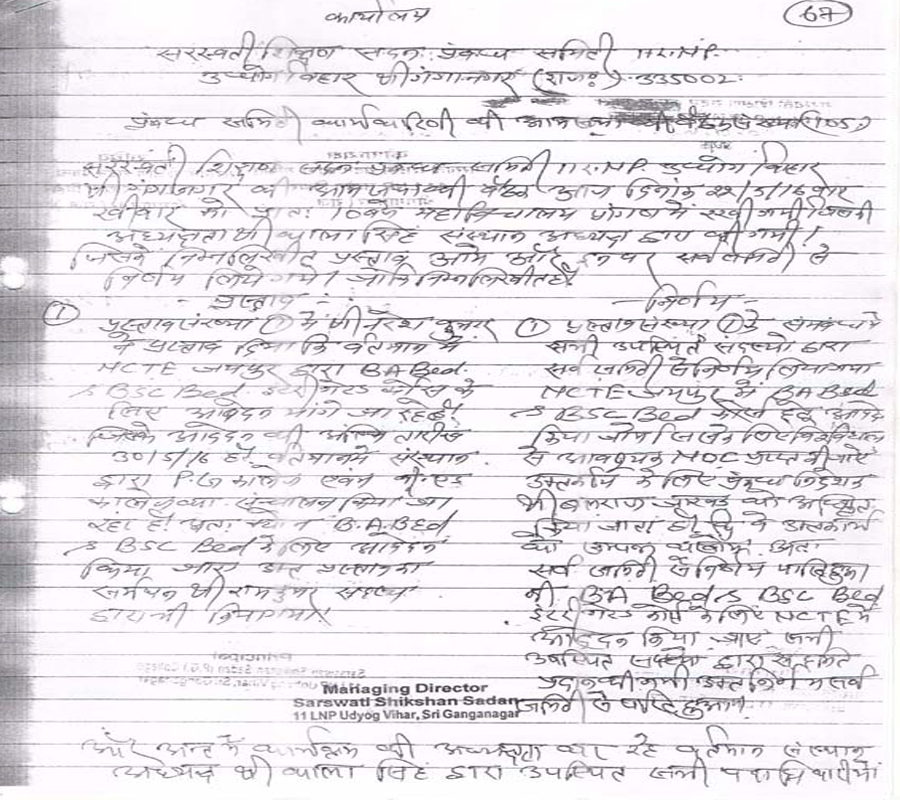 कार्यालय
67
सरस्वती शिक्षण सदन प्रबन्ध समिती 11 L.N.P.
उद्योग विहार श्री गंगानगर (राज०) 335002
प्रबन्ध समिती कार्यकारिणी की आम सभा
सरस्वती शिक्षण सदन प्रबन्ध समिती 11 L.N.P. उद्योग विहार
श्री गंगानगर की आम सभा की बैठक आज दिनांक 22/5/16 वार
रवीवार को प्रातः 10 बजे महाविद्यालय प्रांगण में रखी गयी जिसकी
अध्यक्षता श्री काला सिंह संस्थान अध्यक्ष द्वारा की गयी।
जिसमें निम्नलिखीत प्रस्ताव आये और इन पर सर्वसमिती से
निर्णय लिये गये। जो कि निम्नलिखीत है।
- प्रस्ताव -
① प्रस्ताव संख्या ① में श्री नरेश कुमार
ने प्रस्ताव दिया कि वर्तमान में
NCTE जयपुर द्वारा BA Bed.
& BSC Bed. इंटीग्रेटेड कोर्स के
लिए आवेदन मांगे जा रहे है।
जिसके आवेदन की अन्तिम तारीख
30/5/16 है। वर्तमान में संस्थान
द्वारा P.G कालेज एवम बी.एड
कालेज का संचालन किया जा
रहा है। अतः B.A.BEd
& BSC Bed के लिए आवेदन
किया जाए उक्त प्रस्ताव का
समर्थन श्री रामकुमार सदस्य
द्वारा भी किया गया।
- निर्णय -
① प्रस्ताव संख्या ① के सम्बन्ध में
सभी उपस्थित सदस्यो द्वारा
सर्व समिती से निर्णय लिया गया
NCTE जयपुर में BA Bed
& BSC Bed कोर्स हेतु आवेदन
किया जाये जिसके लिए विश्वविद्यालय
से आवश्यक NOC प्राप्त की जाए
उक्त कार्य के लिए प्रबन्ध निदेशक
श्री बलराज को अधिकृत
किया जाता है कि वे उक्त कार्य
को सम्पन्न करवायें अतः
सर्व समिती से निर्णय पारित हुआ
की BA Bed & BSC Bed
इंटीग्रेटेड कोर्स के लिए NCTE में
आवेदन किया जाए सभी
उपस्थित सदस्यो द्वारा सहमति
प्रदान की गयी उक्त निर्णय सर्व
समिती से पारित हुआ।
Managing Director
Sarswati Shikshan Sadan
11 LNP Udyog Vihar, Sri Ganganagar
और अन्त में कार्यक्रम की अध्यक्षता कर रहे वर्तमान संस्थान
अध्यक्ष श्री काला सिंह द्वारा उपस्थित सभी पदाधिकारीयों